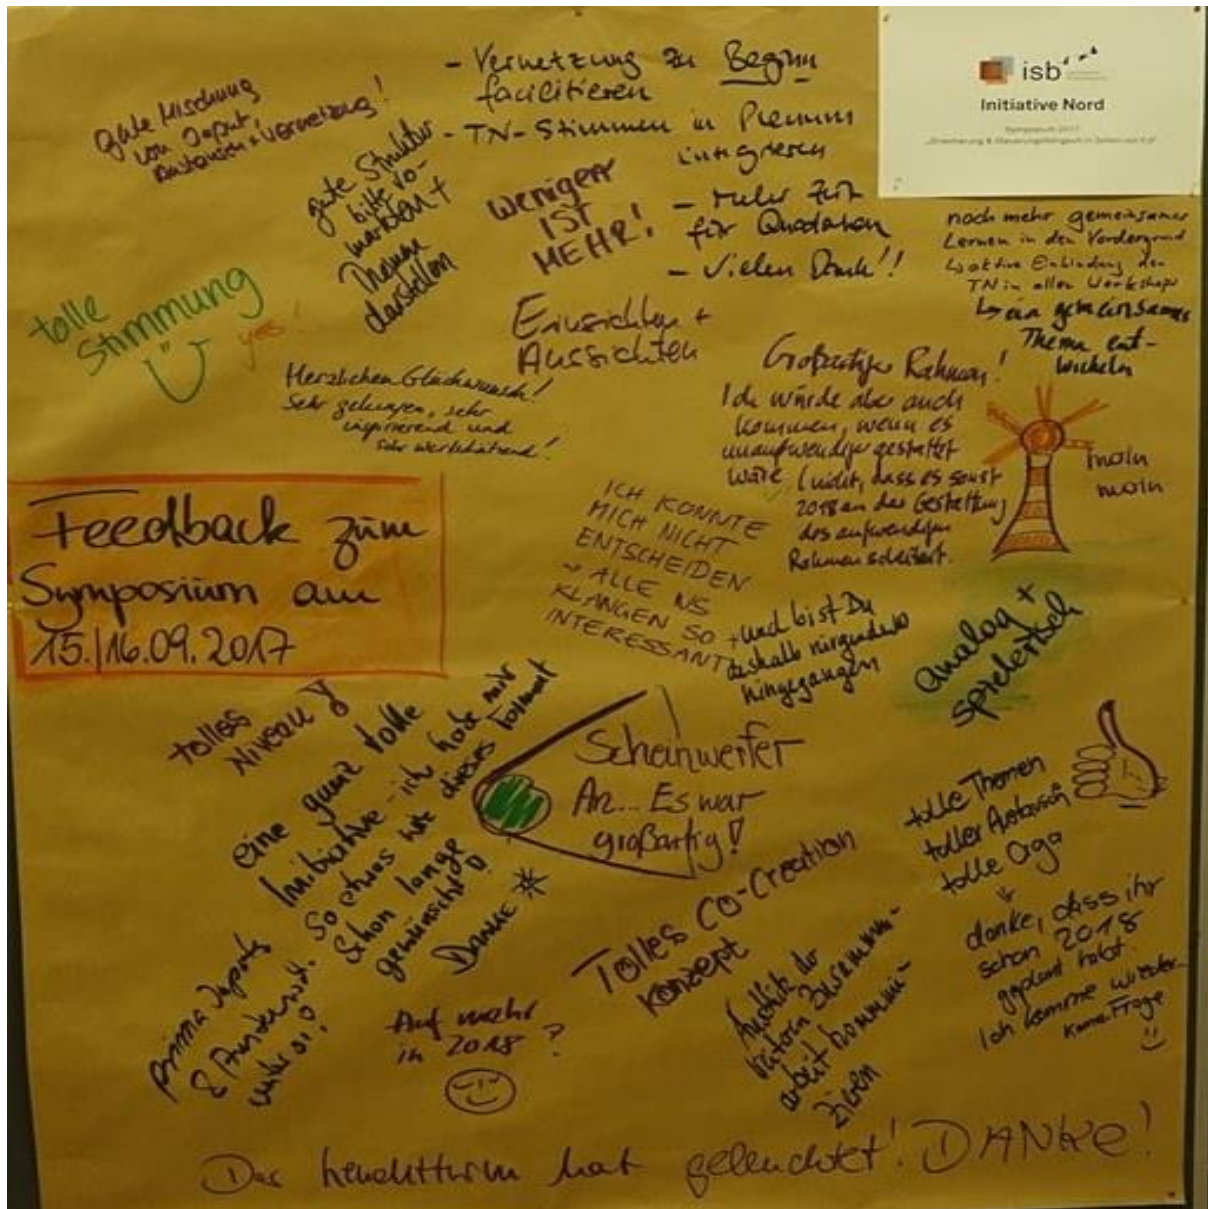 - Vernetzung zu Beginn
facilitieren
- TN-Stimmen in Plenum
integrieren
- Mehr Zeit
für Quadahon
- Vielen Dank!!
isb
Initiative Nord
Symposium 2017
gute Mischung
von Input,
Austausch + Vernetzung!
gute Struktur
bitte vo-
Themen
darstellen
WENIGER
IST
MEHR!
noch mehr gemeinsames
Lernen in den Vordergrund
↳ aktive Einbindung der
TN in allen Workshops
↳ ein gemeinsames
Thema ent-
wickeln
tolle
Stimmung
yes!
Einsichten +
Aussichten
Herzlichen Glückwunsch!
Sehr gelungen, sehr
inspirierend und
sehr wertschätzend!
Großartiger Rahmen!
Ich würde aber auch
kommen, wenn es
unaufwendiger gestaltet
wäre (nicht, dass es sonst
2018 an der Gestaltung
des aufwendigen
Rahmen scheitert.
moin
moin
Feedback zum
Symposium am
15./16.09.2017
ICH KONNTE
MICH NICHT
ENTSCHEIDEN
→ ALLE WS
KLANGEN SO
INTERESSANT
+ und bist Du
deshalb nirgendwo
hingegangen
analog +
spielerisch
tolles
Niveau!
eine ganz tolle
Initiative - ich habe mir
so etwas wie dieses Format
schon lange
gewünscht!
DANKE
Scheinwerfer
An... Es war
großartig!
tolle Themen
toller Austausch
tolle Orga
danke, dass ihr
schon 2018
geplant habt.
Ich komme wieder.
Keine Frage
Tolles Co-Creation
Konzept
prima Inputs
&
Auf mehr
in 2018?
Ausblick der
weiteren Zusammen-
arbeit kommuni-
zieren
Der Leuchtturm hat geleuchtet! DANKE!